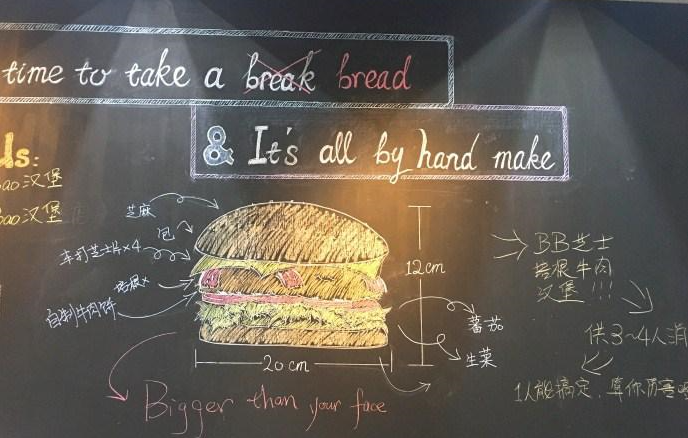 time to take a break bread
& It's all by hand make
ls:
bao汉堡
bao汉堡
芝麻
包
车打芝士片×4
培根×
自制牛肉饼
12cm
20 cm
蕃茄
生菜
Bigger than your face
BB芝士
培根牛肉
汉堡!!!
供3~4人消
1人能搞定,算你厉害